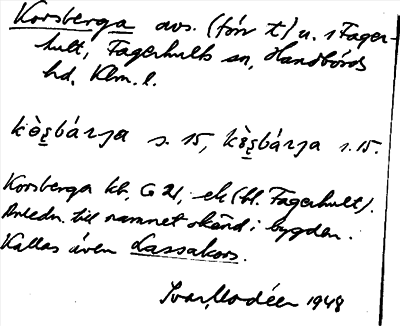 Korsberga avs. (förr t) u. 1 Fager-
hult, Fagerhults sn, Handbörds
hd, Klm. l.
kò̀ʂbárja s. 15, kò̀ʂbárja s. 15.
Korsberga kb, G 21, ek (bl. Fagerhult).
Anledn. till namnet okänd i bygden.
Kallas även Lassakors.
Ivar Modéer 1948